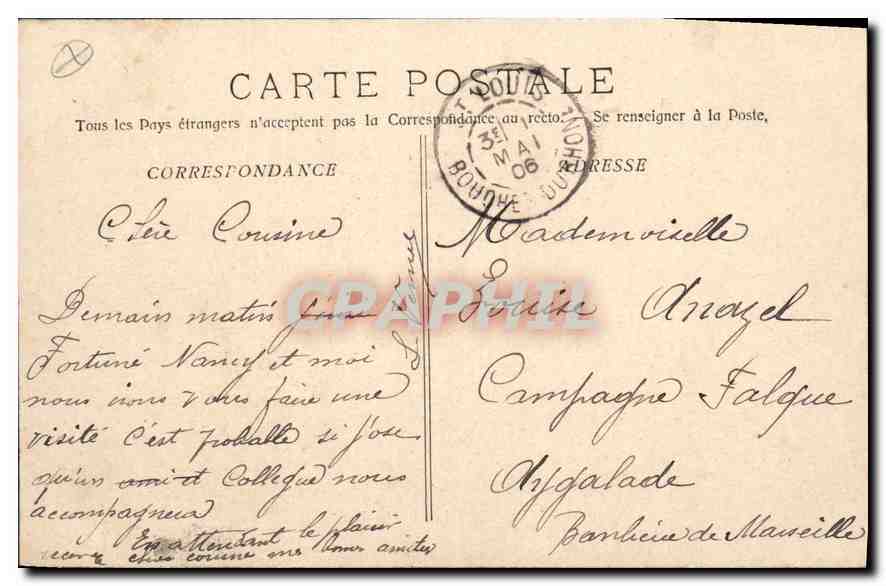 CARTE POSTALE
Tous les Pays étrangers n'acceptent pas la Correspondance au recto. Se renseigner à la Poste,
CORRESPONDANCE
ADRESSE
ST LOUIS
3E 1
MAI
06
BOUCHES-DU-RHONE
Chère Cousine
Demain matin
Fortuné Nancy et moi
nous irons vous faire une
visité C'est probable si j'ose
qu'un ami et Collegue nous
accompagnera
En attendant le plaisir
comme mes bones amities
Mademoiselle
Louise Anazel
Campagne Falque
Aygalade
Banlieue de Marseille
CPAPHIL